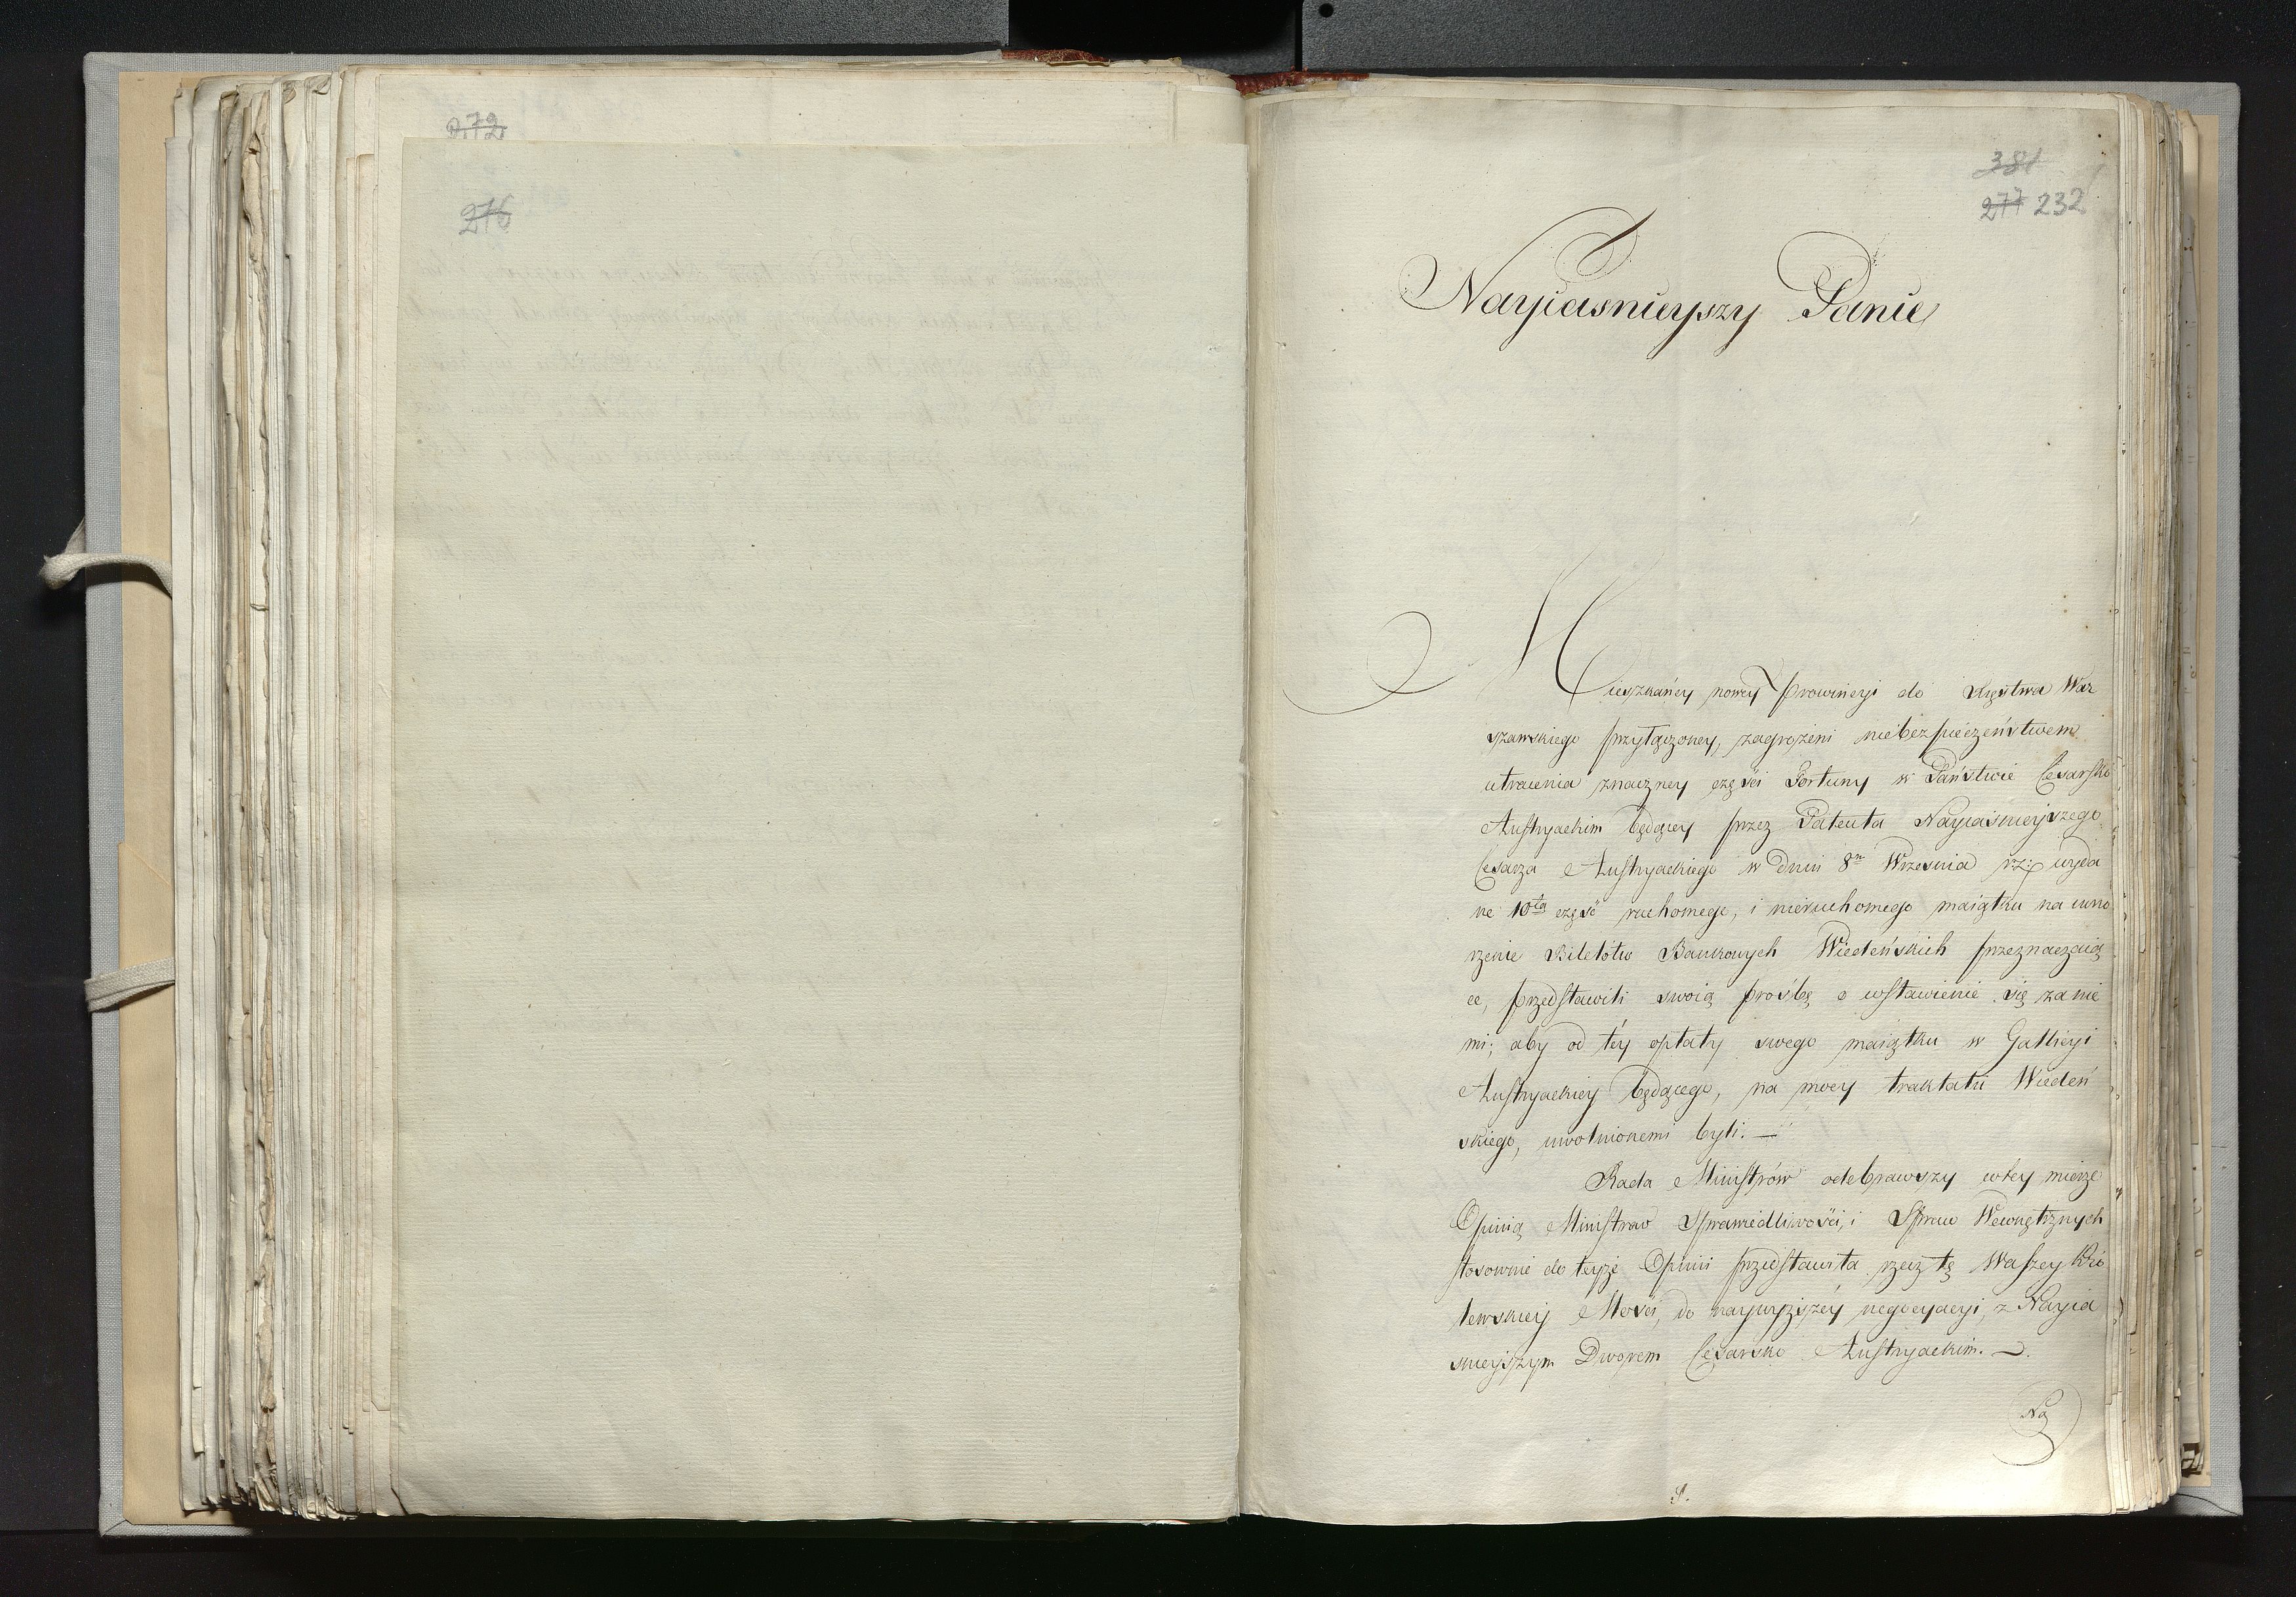 272
276
381
277 232
Nayiasnieyszy Panie
Mieszkańcy nowey prowincyi do Xięstwa War
szawskiego przyłączoney, zagrożeni niebezpieczeństwem
utracenia znaczney części Fortuny w Państwie Cesarsko
Austryackim będącey przez Patenta Nayiaśnieyszego
Cesarza Austryackiego w dniu 8m Września r:z: wyda
ne 10tą część ruchomego, i nieruchomego maiątku na umo
rzenie Biletów Bankowych Wiedeńskich przeznaczaią
ce, przedstawili swoią prośbę o wstawienie się za nie
mi; aby od téy opłaty swego maiątku w Gallicyi
Austryackiey będącego, na mocy traktatu Wiedeń
skiego, uwolnionemi byli. —
Rada Ministrów odebrawszy w tey mierze
Opinią Ministrow Sprawiedliwości, i Spraw Wewnętrznych
stosownie do teyże Opinii przedstawiła rzecz tę Waszey Kró
lewskiey Mości, do naywyższéy negocyacyi, z Nayia
śnieyszym Dworem Cesarsko Austryackim. —
Na
S.